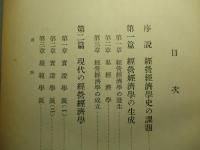 目次
序説 經營經濟學史の課題
第一篇 經營經濟學の生成
第一章 經營經濟學の發生
第二章 私經濟學
第三章 經營經濟學の成立
第二篇 現代の經營經濟學
第一章 實證學派(一)
第二章 實證學派(二)
第三章 規範學派